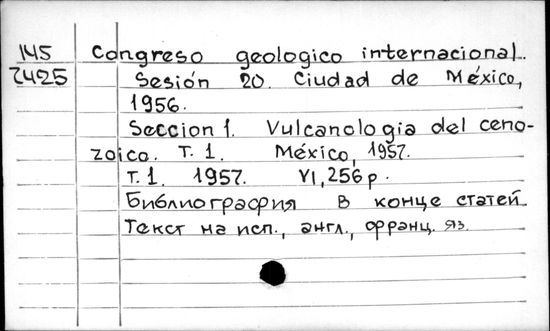 145 Congreso geologico internacional.
2425 Sesión 20. Ciudad de México,
1956.
Seccion 1. Vulcanologia del ceno-
zoico. T. 1. México, 1957.
T. 1. 1957. VI, 256 p.
Библиография в конце статей.
Текст на исп., англ., франц. яз.